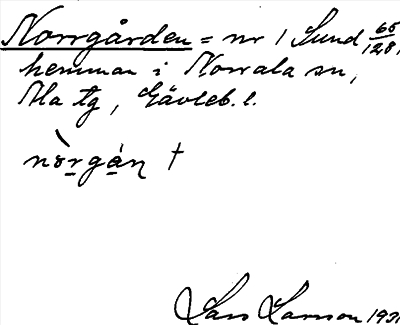 Norrgården = nr 1 Sund 65/128,
hemman i Norrala sn,
Ala tg, Gävleb. l.
nòrgáṇ †
Lars Larsson 1931